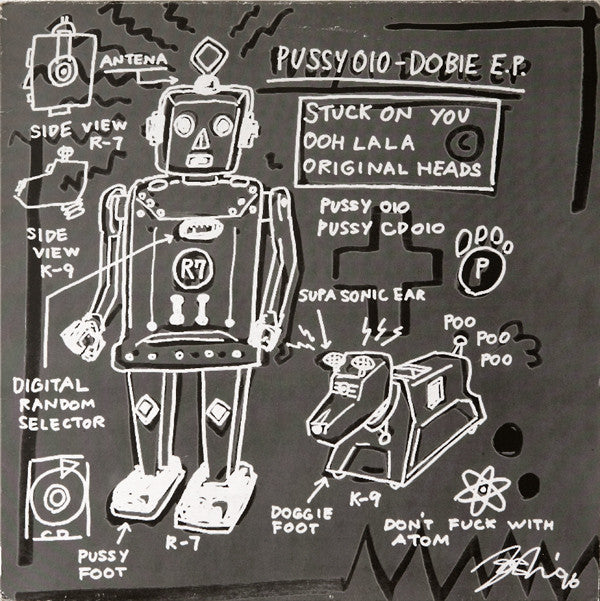 PUSSY 010-DOBIE E.P.
ANTENA
STUCK ON YOU
OOH LALA
ORIGINAL HEADS
C
SIDE VIEW
R-7
PUSSY 010
PUSSY CD010
SIDE
VIEW
K-9
R7
P
SUPA SONIC EAR
POO
POO
POO
DIGITAL
RANDOM
SELECTOR
CD
PUSSY
FOOT
R-7
DOGGIE
FOOT
K-9
DON'T FUCK WITH
ATOM
'96